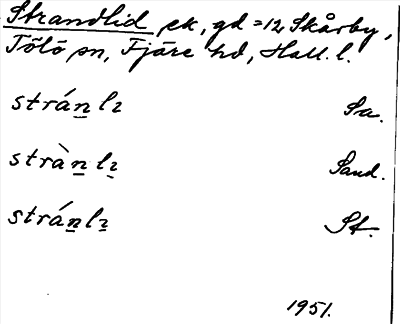 Strandlid ek, gd =12 Skårby,
Tölö sn, Fjäre hd, Hall. l.
strán̲lı Sa.
stràn̲lı̣ Sand.
strán̲lı̣ St.
1951.